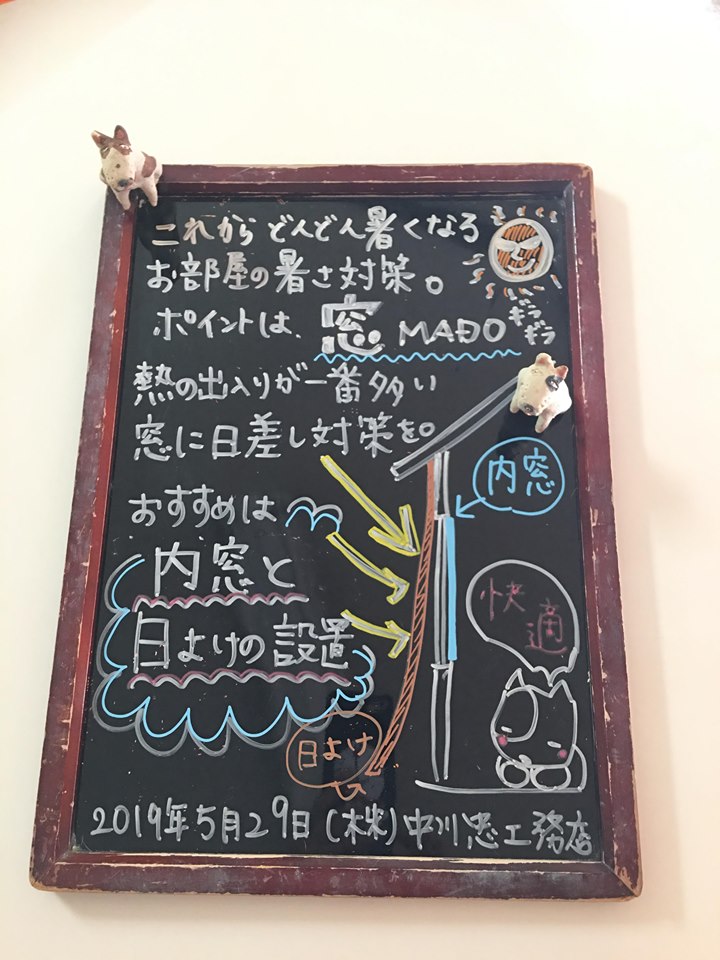 これからどんどん暑くなる
お部屋の暑さ対策。
ポイントは、窓 MADO
ギラギラ
熱の出入りが一番多い
窓に日差し対策を。
内窓
おすすめは
内窓と
日よけの設置
快適
日よけ
2019年5月29日(株)中川忠工務店